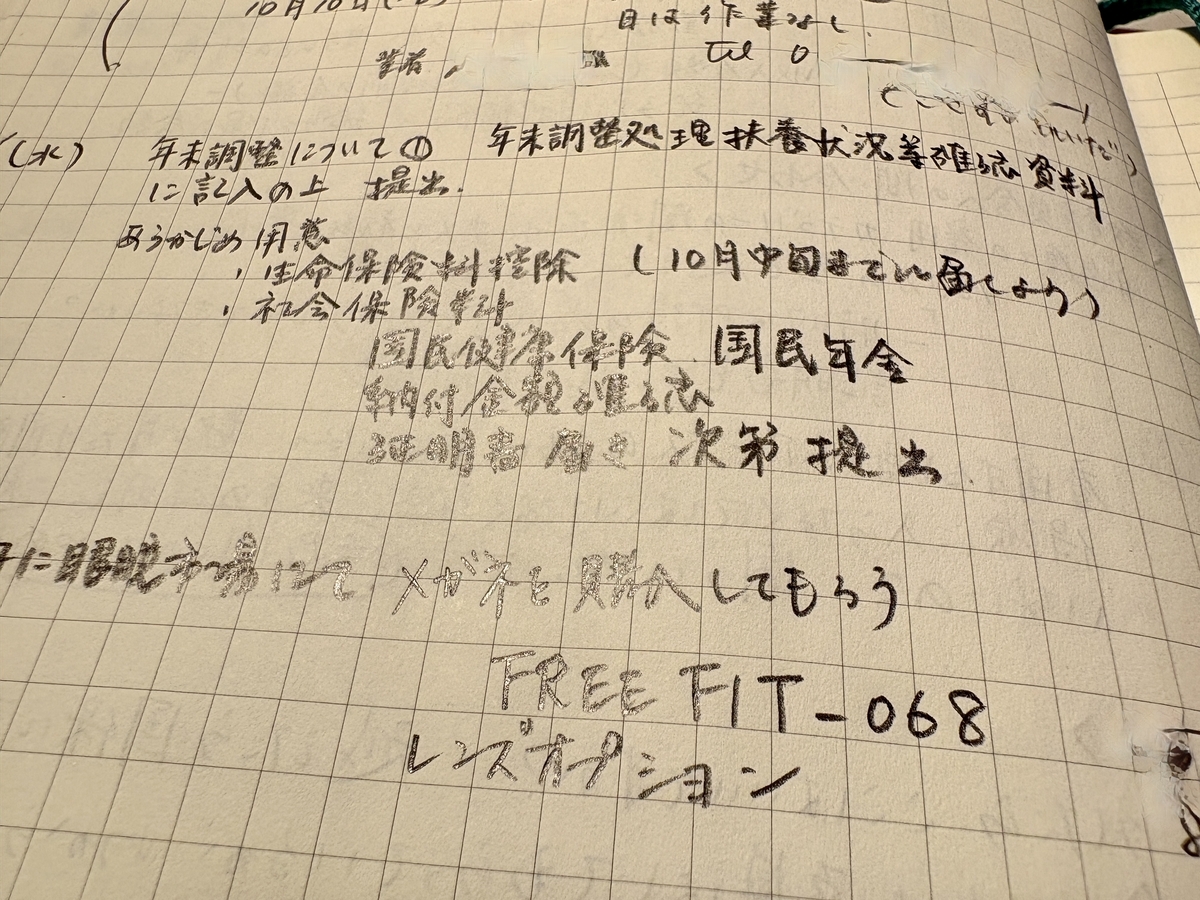 10月10日(
日は作業なし.
業者
Tel 0
(水) 年末調整について① 年末調整処理扶養状況等確認資料
に記入の上 提出.
あらかじめ用意
・生命保険料控除 (10月中旬までに届くよう)
・社会保険料
国民健康保険 国民年金
納付金額を確認
証明書届き次第提出.
に眼鏡市場にて メガネを購入してもらう
FREE FIT-068
レンズオプション